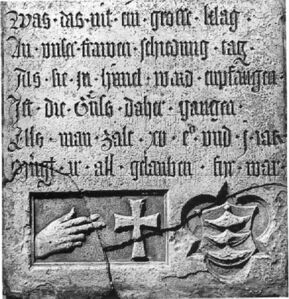 Was · das · nit · ein · grosse · klag ·
An · unser · frawen · schidung · tag ·
Als · sie · in · himel · ward · empfangen ·
Ist · die · Gũls · daher · gangen ·
Als · man · zalt · xv · cͦ · vnd · j · iar
· all · gelauben · fir · war